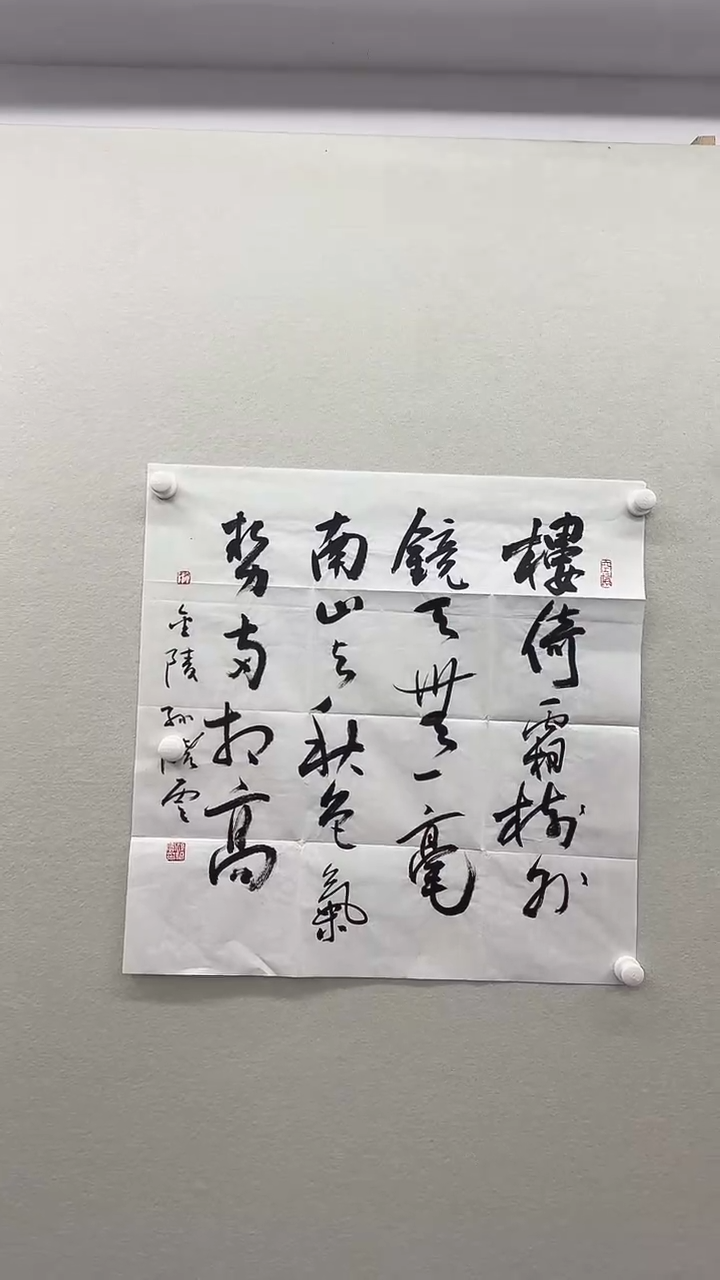 樓倚霜樹外
鏡天無一毫
南山与秋色氣
勢兩相高
金陵孫雲